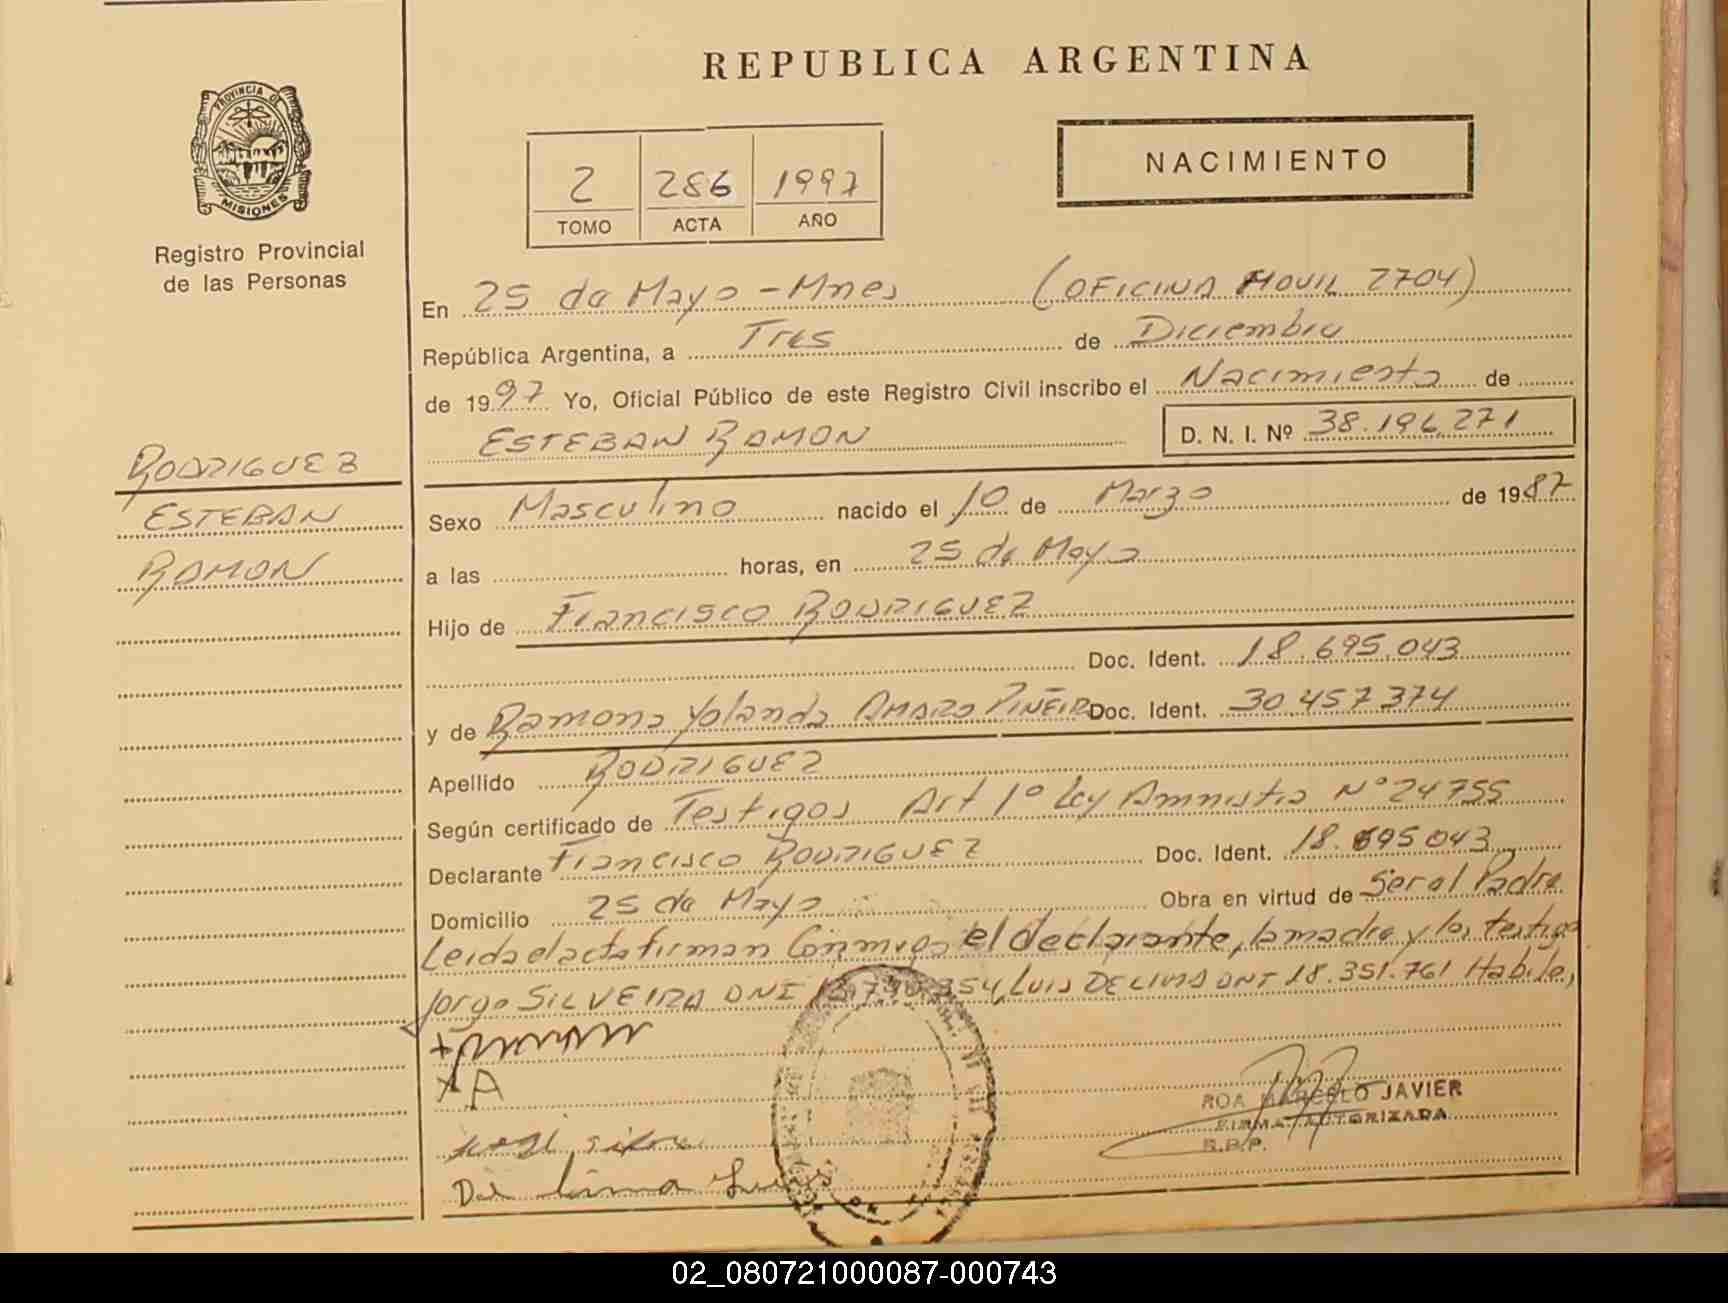 REPUBLICA ARGENTINA
PROVINCIA DE
MISIONES
Registro Provincial
de las Personas
2 286 1997
TOMO ACTA AÑO
NACIMIENTO
En 25 de Mayo - Mnes (OFICINA MOVIL 2704)
República Argentina, a Tres de Diciembre
de 1997 Yo, Oficial Público de este Registro Civil inscribo el Nacimiento de
ESTEBAN RAMON D. N. I. Nº 38.196.271
RODRIGUEZ
ESTEBAN
RAMON
Sexo Masculino nacido el 10 de Marzo de 1987
a las horas, en 25 de Mayo
Hijo de Francisco RODRIGUEZ
Doc. Ident. 18.695.043
y de Ramona Yolanda AMARO PIÑEIRO Doc. Ident. 30.457.374
Apellido RODRIGUEZ
Según certificado de Testigos Art 1º Ley Amnistia Nº 24755
Declarante Francisco RODRIGUEZ Doc. Ident. 18.695043
Domicilio 25 de Mayo Obra en virtud de Ser el Padre
Leida el acta firman Conmigo el declarante, la madre y los testigo
Jorge SILVEIRA DNI, Luis DE LIMA DNI 18.351.761 Habiles,
XA
De Lima Luis
ROA MARCELO JAVIER
FIRMA AUTORIZADA
R.P.P.
02_080721000087-000743